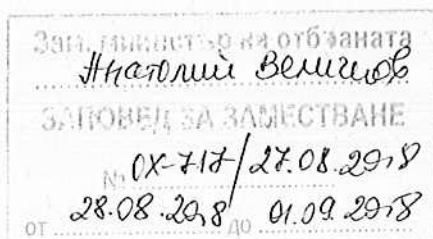 Зам. министър на отбраната
Анатолий Величков
ЗАПОВЕД ЗА ЗАМЕСТВАНЕ
№ ОХ-717/27.08.2018
от 28.08.2018 до 01.09.2018